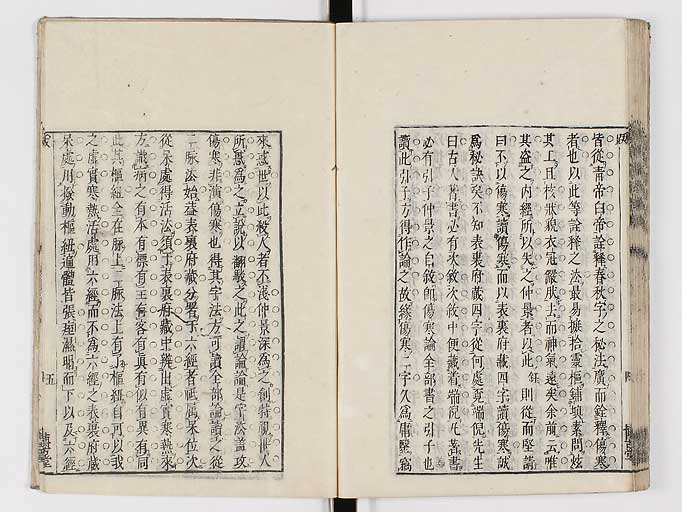 皆從青帝白帝詮釋春秋字之秘法廣而銓釋傷寒
者也以此等詮釋之法最易摭拾靈樞鋪塡素問炫
其工且核狀貌衣冠儼肰去而神氣遠矣余爲云唯
其盜之內經所以失之仲景者以此 鈺 則從而堅請
曰不以傷寒讀傷寒而以表裏府藏四字讀傷寒誠
爲秘訣矣不知表裏府藏四字從何處覓端倪先生
曰古人著書必有次敘次敘中便藏著端倪凡著書
必有引子仲景之自敘傷寒論全部書之引子也
讀此引子方得作論之故緣傷寒二字久爲庸醫窩
來惑世以此殺人者不淺仲景深爲之創特視世人
所惑爲之立說以翻駁之此之謂論論是字法蓋攻
傷寒非演傷寒也得其字法方可讀全部論讀之從
二脈法始蓋表裏府藏分署于六經者祗屬呆位次
從呆處得活法須于表裏府藏中辨出虛實寒熱來
方識病之有本有標有主有客有真有似有異有同
此其樞紐全在脈上二脈法上有了樞紐自可以我
之虛實寒熱活處用六經而不爲六經之表裏府藏
呆處用撥動樞紐運體皆張痙濕暍而下以及六經
五